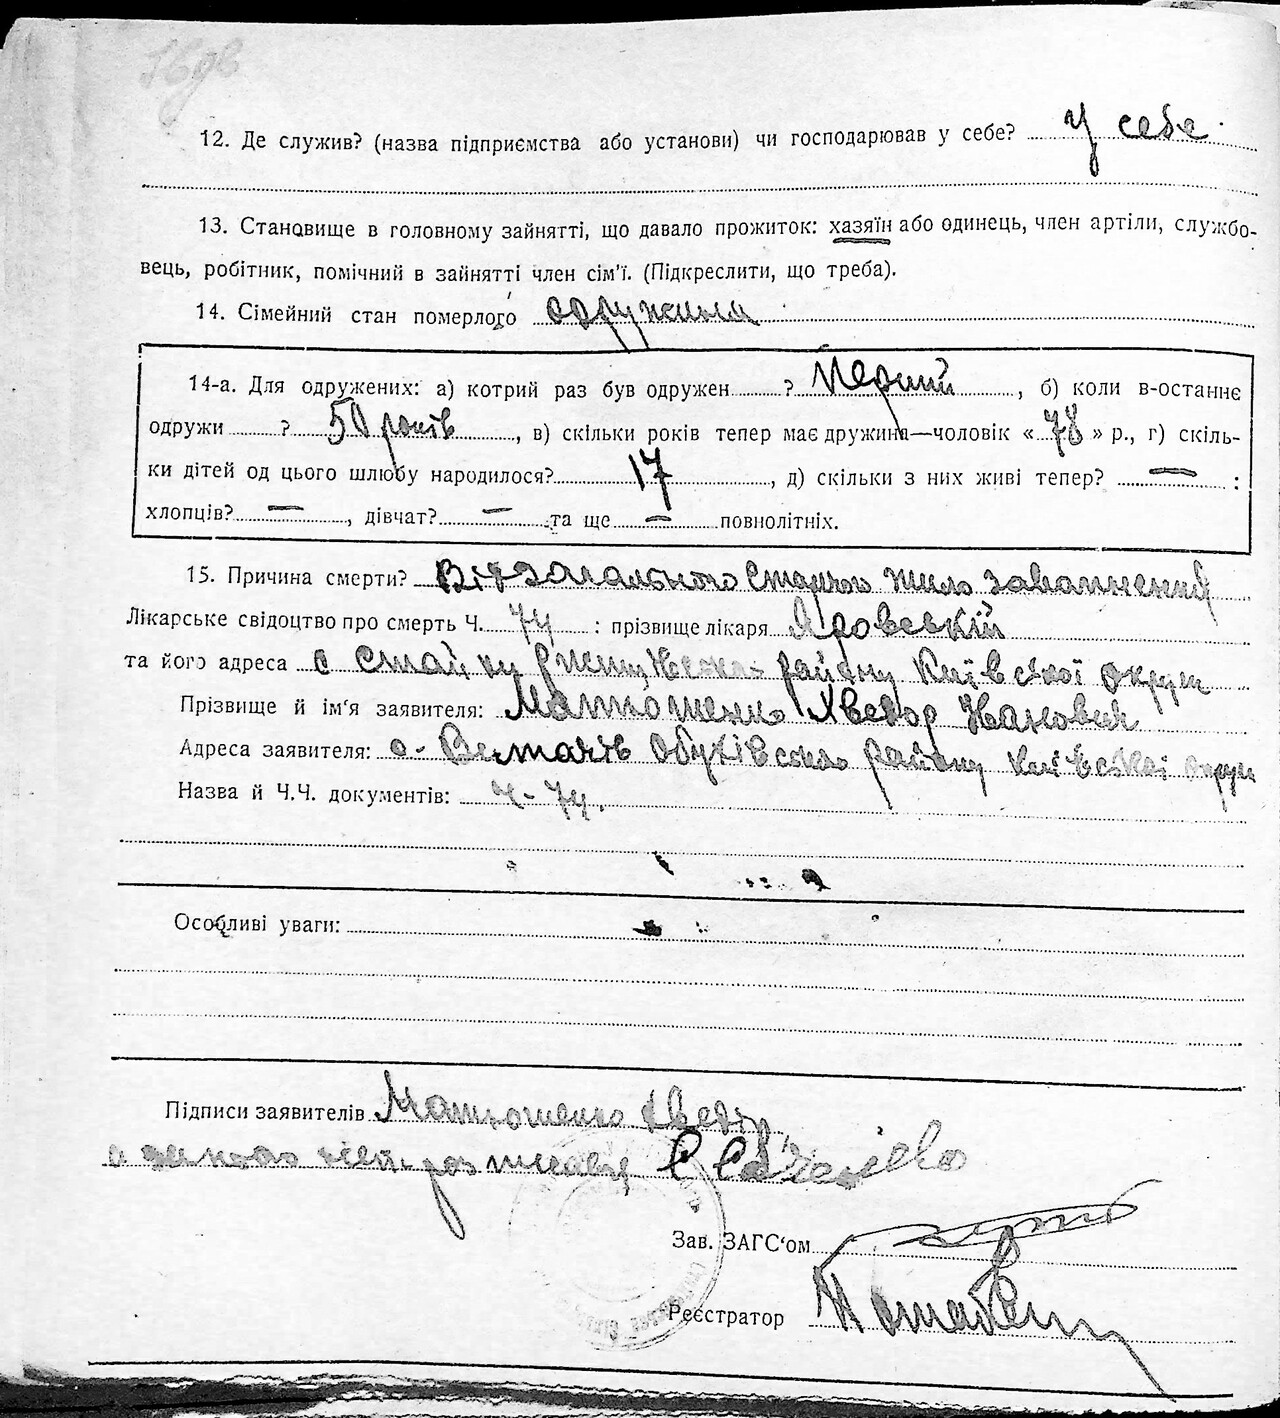 12. Де служив? (назва підприємства або установи) чи господарював у себе? у себе.
13. Становище в головному зайнятті, що давало прожиток: хазяїн або одинець, член артіли, службо-
вець, робітник, помічний в зайнятті член сім'ї. (Підкреслити, що треба).
14. Сімейний стан померлого одружина
14-а. Для одружених: а) котрий раз був одружен ? Перший, б) коли в-останнє
одружи ? 50 років, в) скільки років тепер має дружина—чоловік « 78 » р., г) скіль-
ки дітей од цього шлюбу народилося? 17, д) скільки з них живі тепер? — :
хлопців? —, дівчат? — та ще — повнолітніх.
15. Причина смерти? Від загального старчого жило завапнення
Лікарське свідоцтво про смерть Ч. 74 : прізвище лікаря Яровській
та його адреса с Стайки району Київської округи
Прізвище й ім'я заявителя: Матюшенко Хведор Іванович
Адреса заявителя: с. Витачів Обухівсько району Київської округи
Назва й Ч.Ч. документів: Ч-74.
Особливі уваги:
Підписи заявителів Матюшенко Хведір
а за його
Зав. ЗАГС'ом
Реєстратор